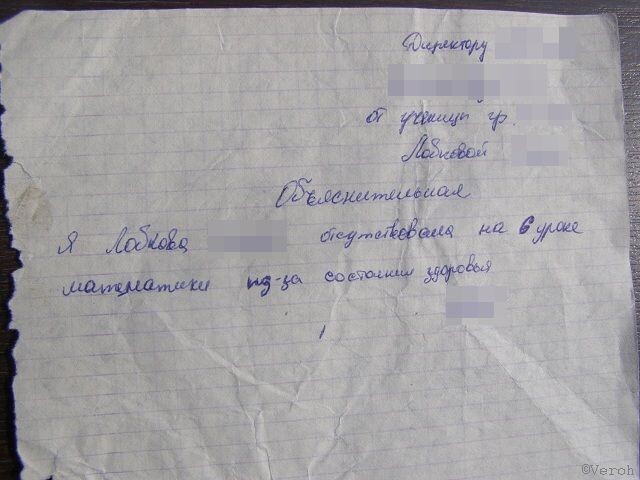 Директору
от ученицы гр.
Лобковой
Объяснительная
Я Лобкова отсутствовала на 6 уроке
математики из-за состояния здоровья
©Veroh